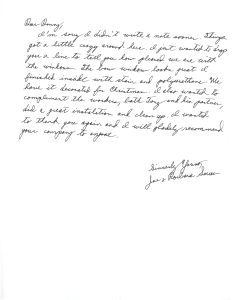 Dear Danny,
I'm sorry I didn't write a note sooner. Things
got a little crazy around here. I just wanted to drop
you a line to tell you how pleased we are with
the windows. The bow window looks great. I
finished inside with stain and polyurethane. We
have it decorated for Christmas. I also wanted to
compliment the workers, both Tony and his partner,
did a great installation and clean up. I wanted
to thank you again and I will gladly recommend
your company to anyone.
Sincerely Yours,
Joe & Barbara